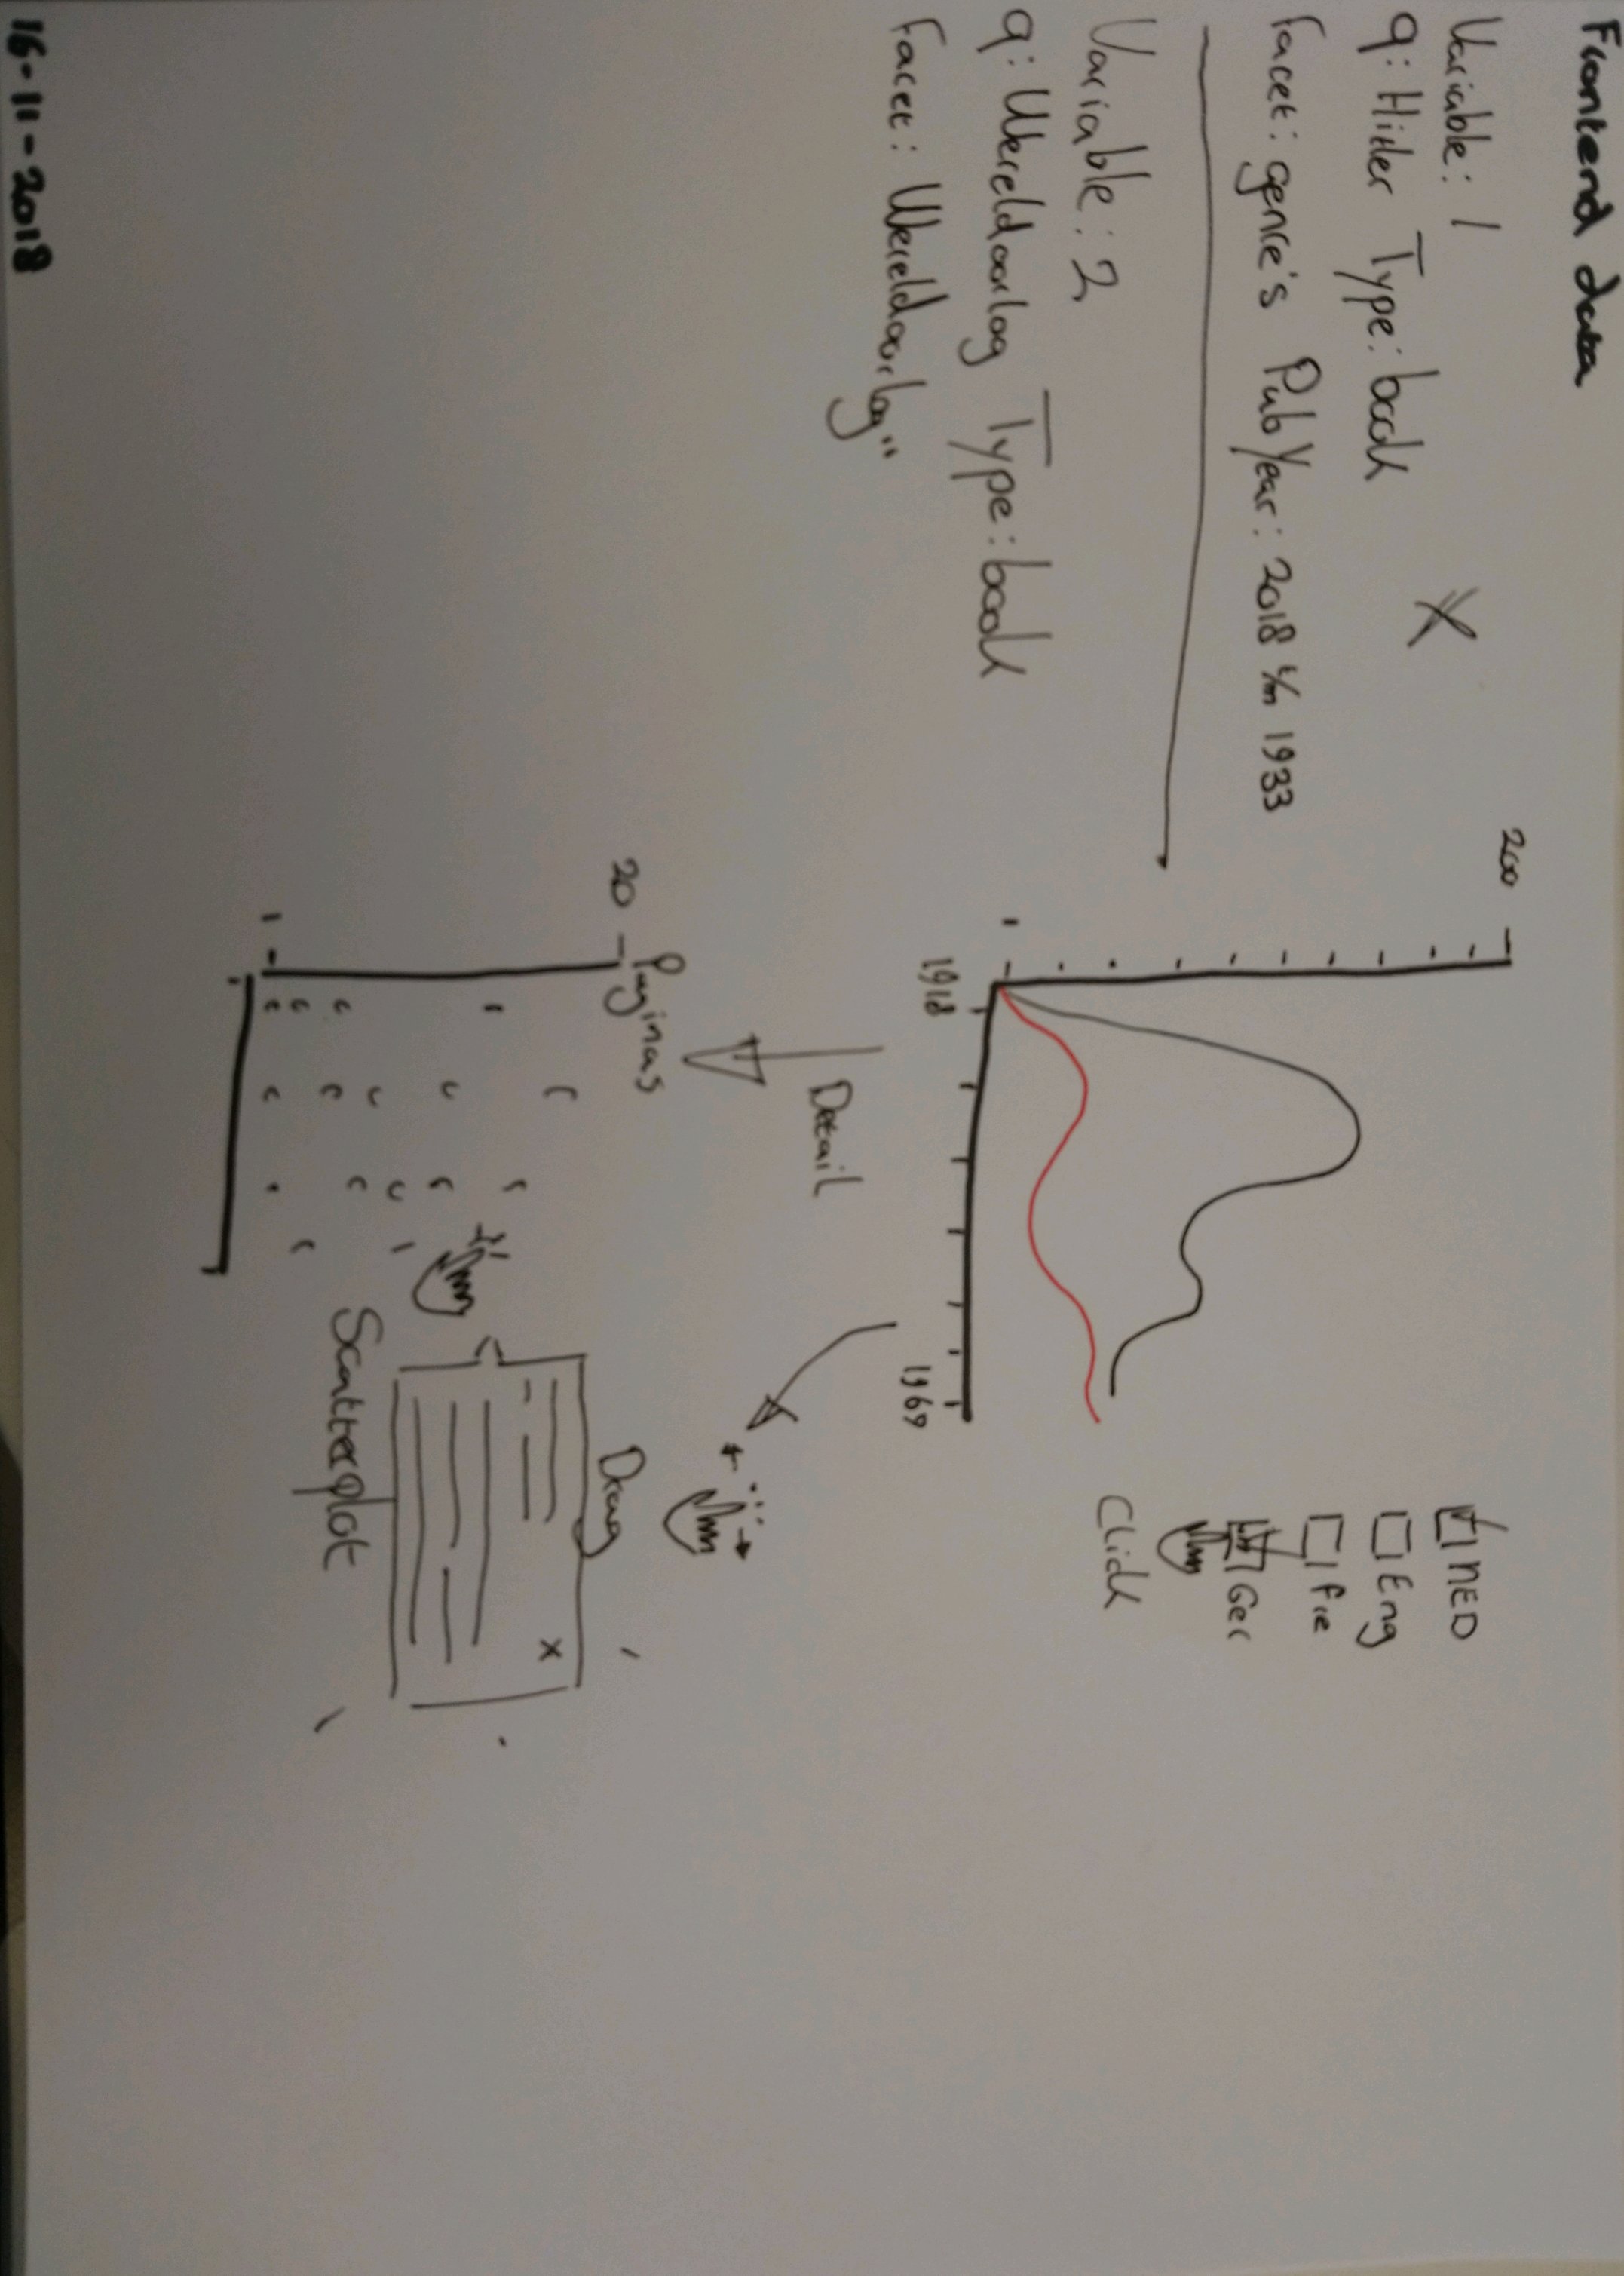 Frontend data
Variable: 1
X
q: Hitler Type: book
Facet: genre's PubYear: 2018 t/m 1933
Variable: 2
q: Wereldoorlog Type: book
Facet: Wereldoorlog"
200
1
1918
1969
NED
Eng
fre
Ger
Click
Detail
Drag
Paginas
20
1
x
Scatterplot
16-11-2018